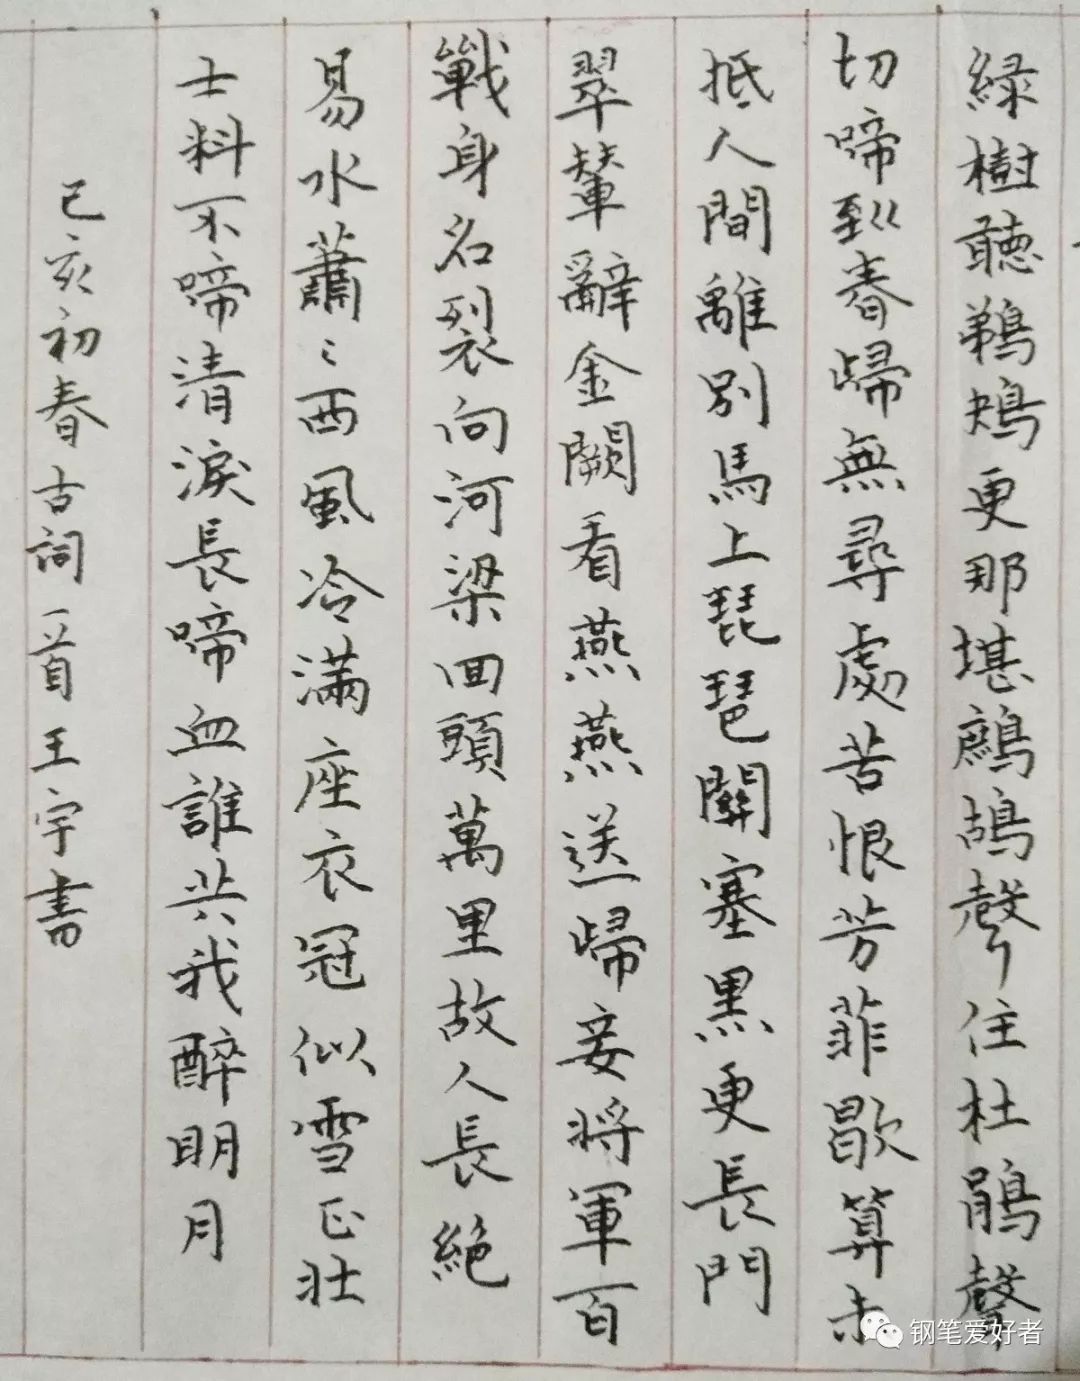 綠樹聽鵜鴂更那堪鷓鴣聲住杜鵑聲
切啼到春歸無尋處苦恨芳菲歇算未
抵人間離別馬上琵琶關塞黑更長門
翠輦辭金闕看燕燕送歸妾將軍百
戰身名裂向河梁回頭萬里故人長絕
易水蕭〻西風冷滿座衣冠似雪正壯
士料不啼清淚長啼血誰共我醉明月
己亥初春古詞一首王宇書
钢笔爱好者